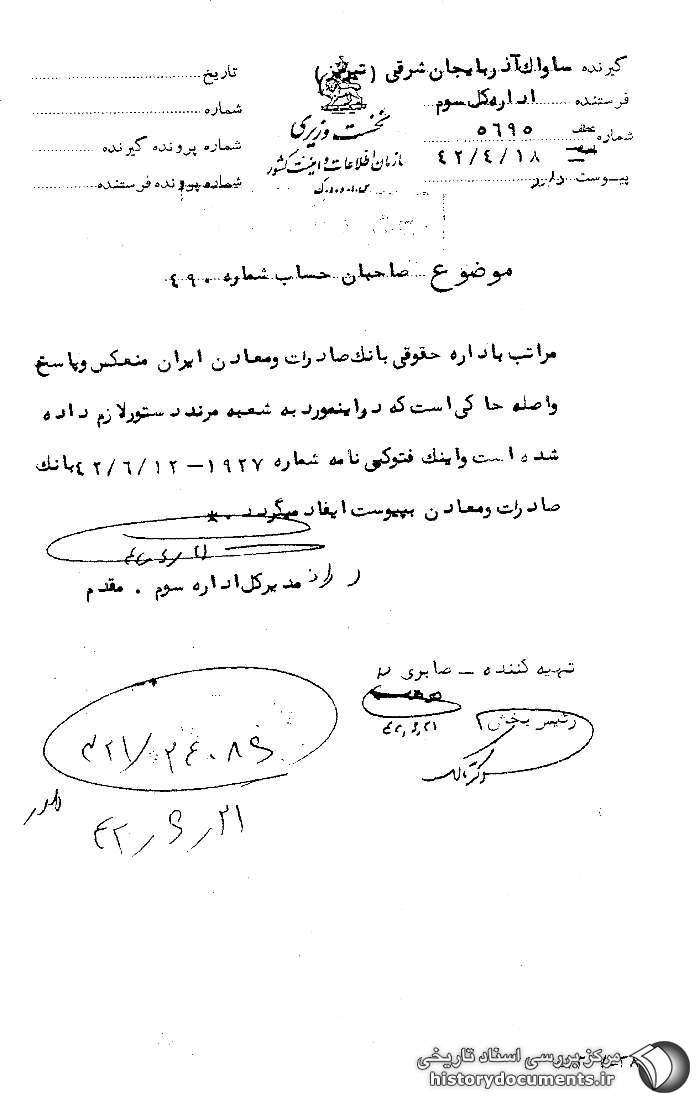 گیرنده ساواک آذربایجان شرقی (تبریز)
فرستنده اداره کل سوم
شماره عطف ۵۶۹۵
۴۲/۴/۱۸
پیوست دارد
نخست وزیری
سازمان اطلاعات و امنیت کشور
س.ا.و.ا.ک
تاریخ
شماره
شماره پرونده گیرنده
شماره پرونده فرستنده
موضوع صاحبان حساب شماره ۴۹۰
مراتب باداره حقوقی بانک صادرات ومعادن ایران منعکس وپاسخ
واصله حاکی است که دراینمورد به شعبه مرند دستور لازم داده
شده است واینک فتوکپی نامه شماره ۱۹۲۷-۴۲/۶/۱۲ بانک
صادرات ومعادن بپیوست ایفاد میگردد. *
۴۲/۶/۲۱
مدیرکل اداره سوم . مقدم
تهیه کننده - صابری
رئیس بخش
۴۲/۶/۲۱
۳۲۱/۲۴۰۸۶
۴۲/۶/۲۱
مرکز بررسی اسناد تاریخی
historydocuments.ir